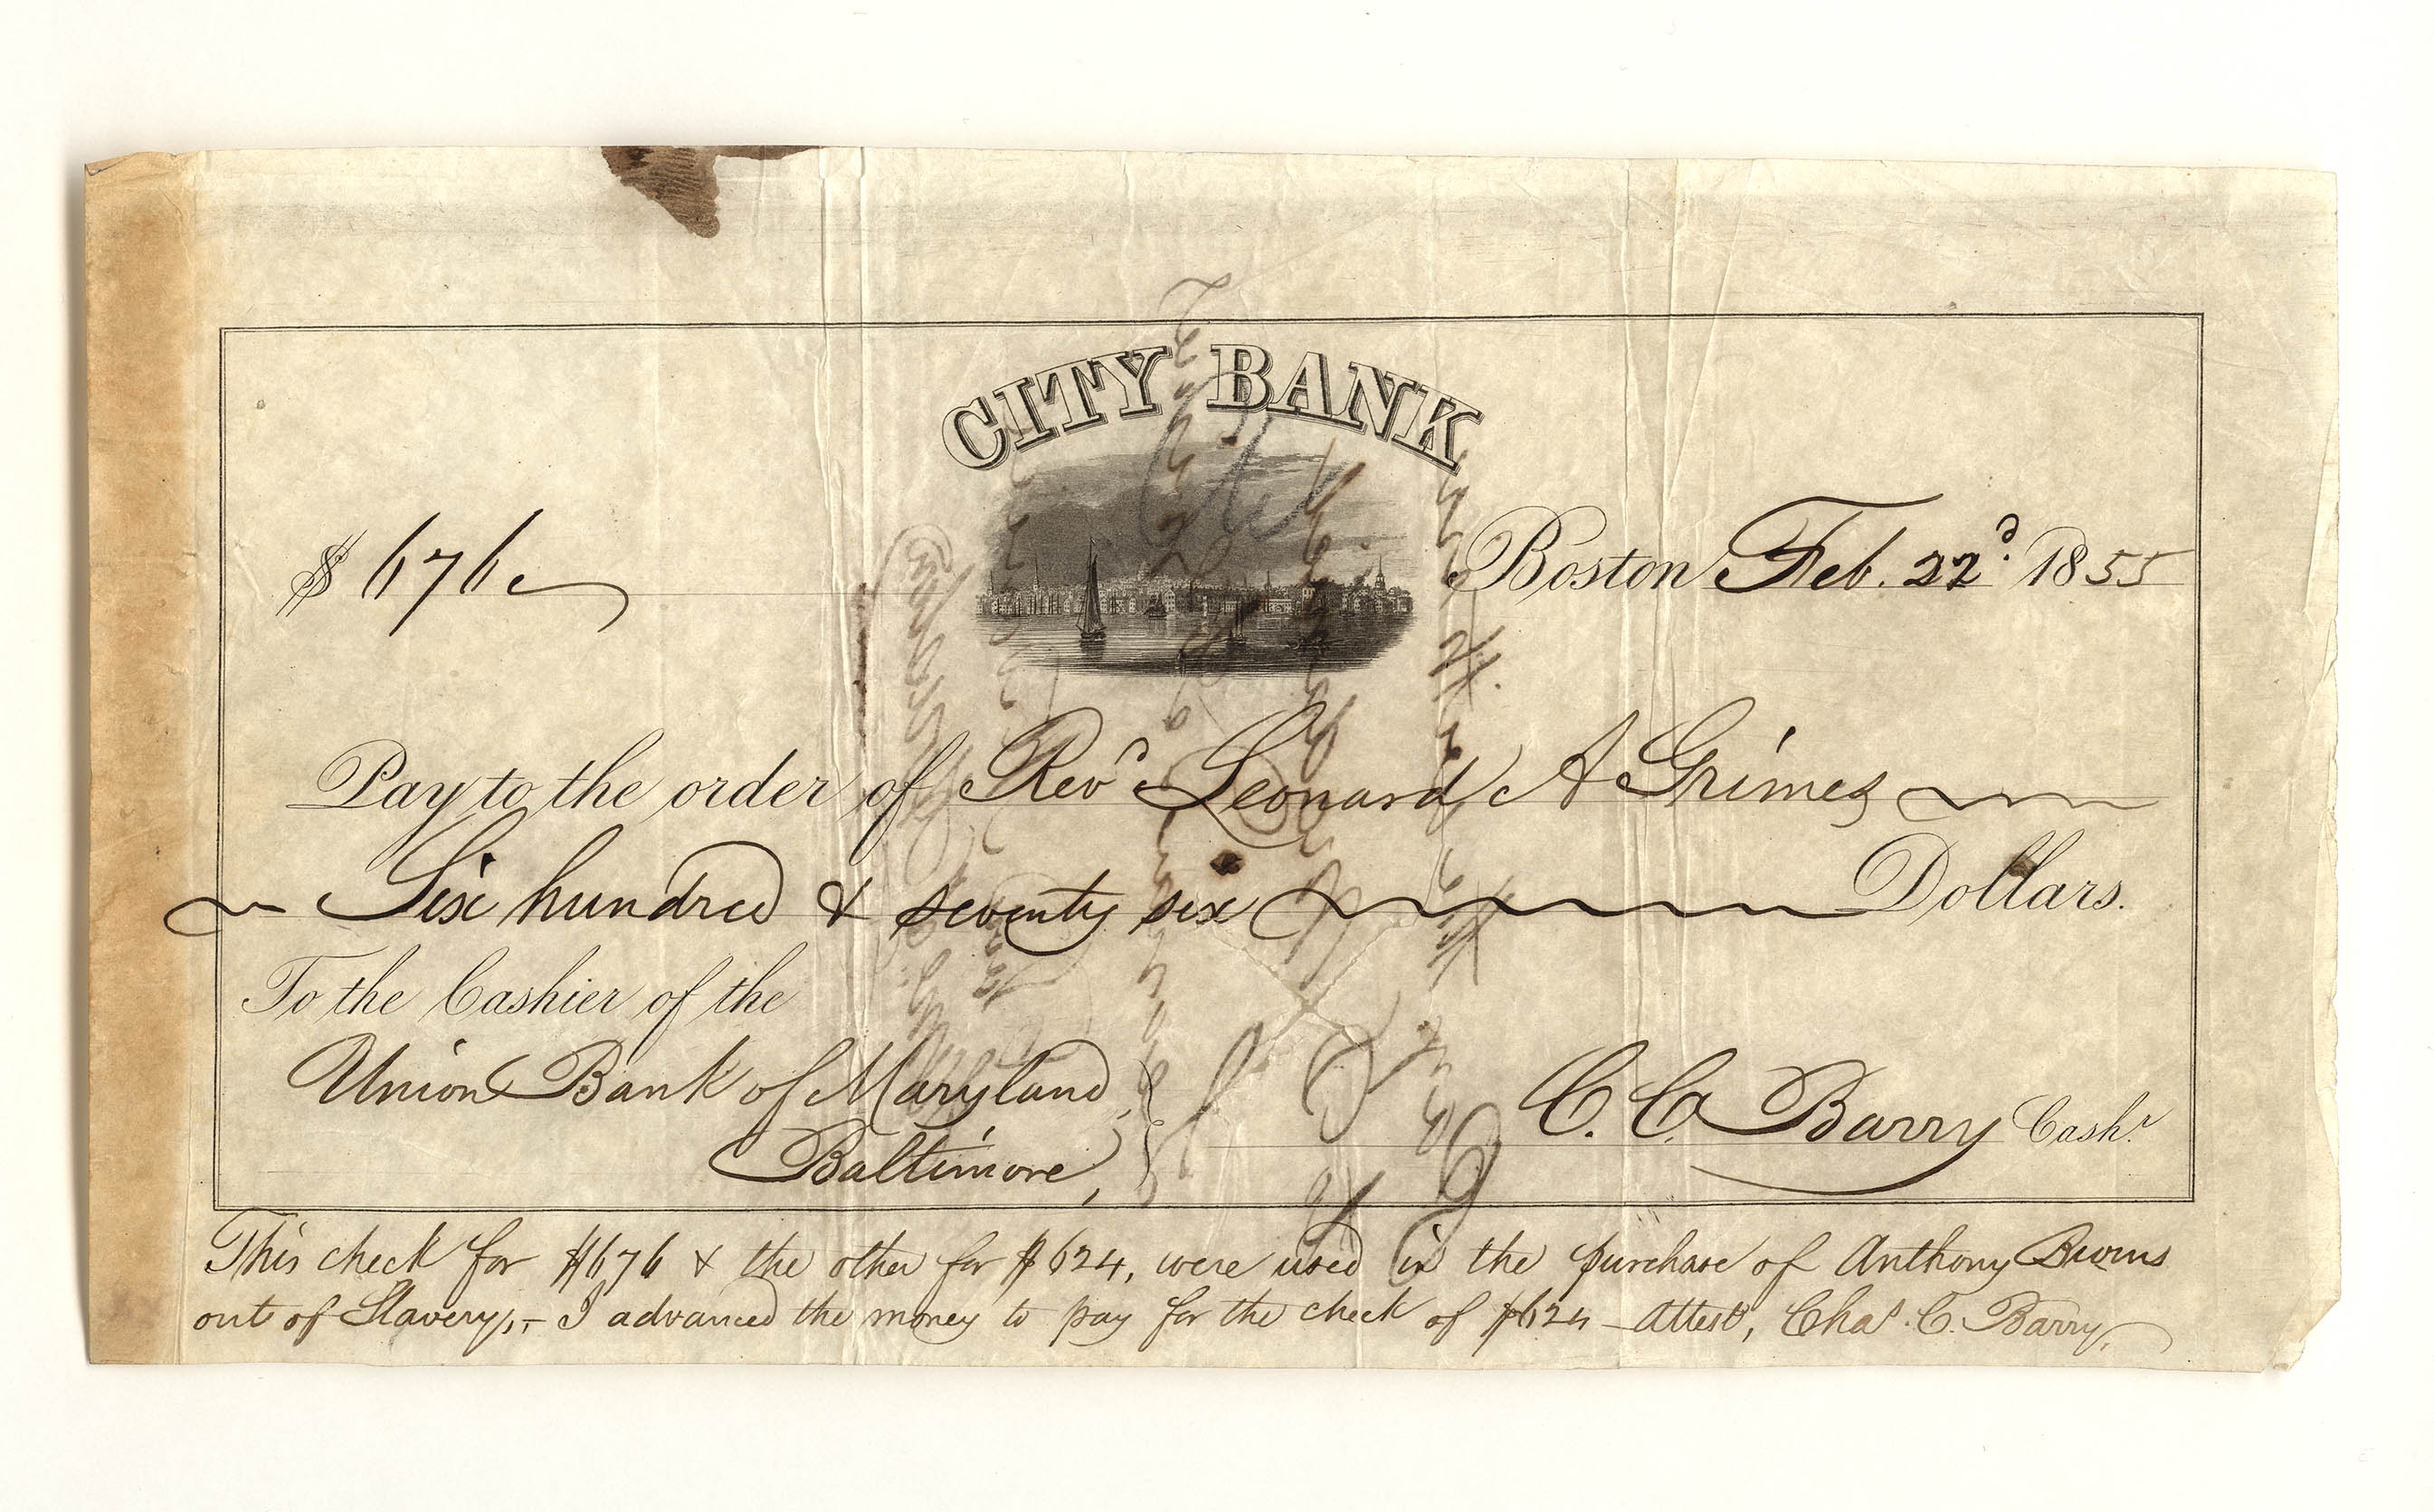 CITY BANK
$ 676 Boston Feb. 22d. 1855
Pay to the order of Revd Leonard A Grimes
Six hundred & seventy six Dollars.
To the Cashier of the
Union Bank of Maryland,
Baltimore,
C. C. Barry Cashr.
This check for $676 & the other for $624, were used in the purchase of Anthony Burns
out of Slavery,,- I advanced the money to pay for the check of $624 - attest, Chas. C. Barry,